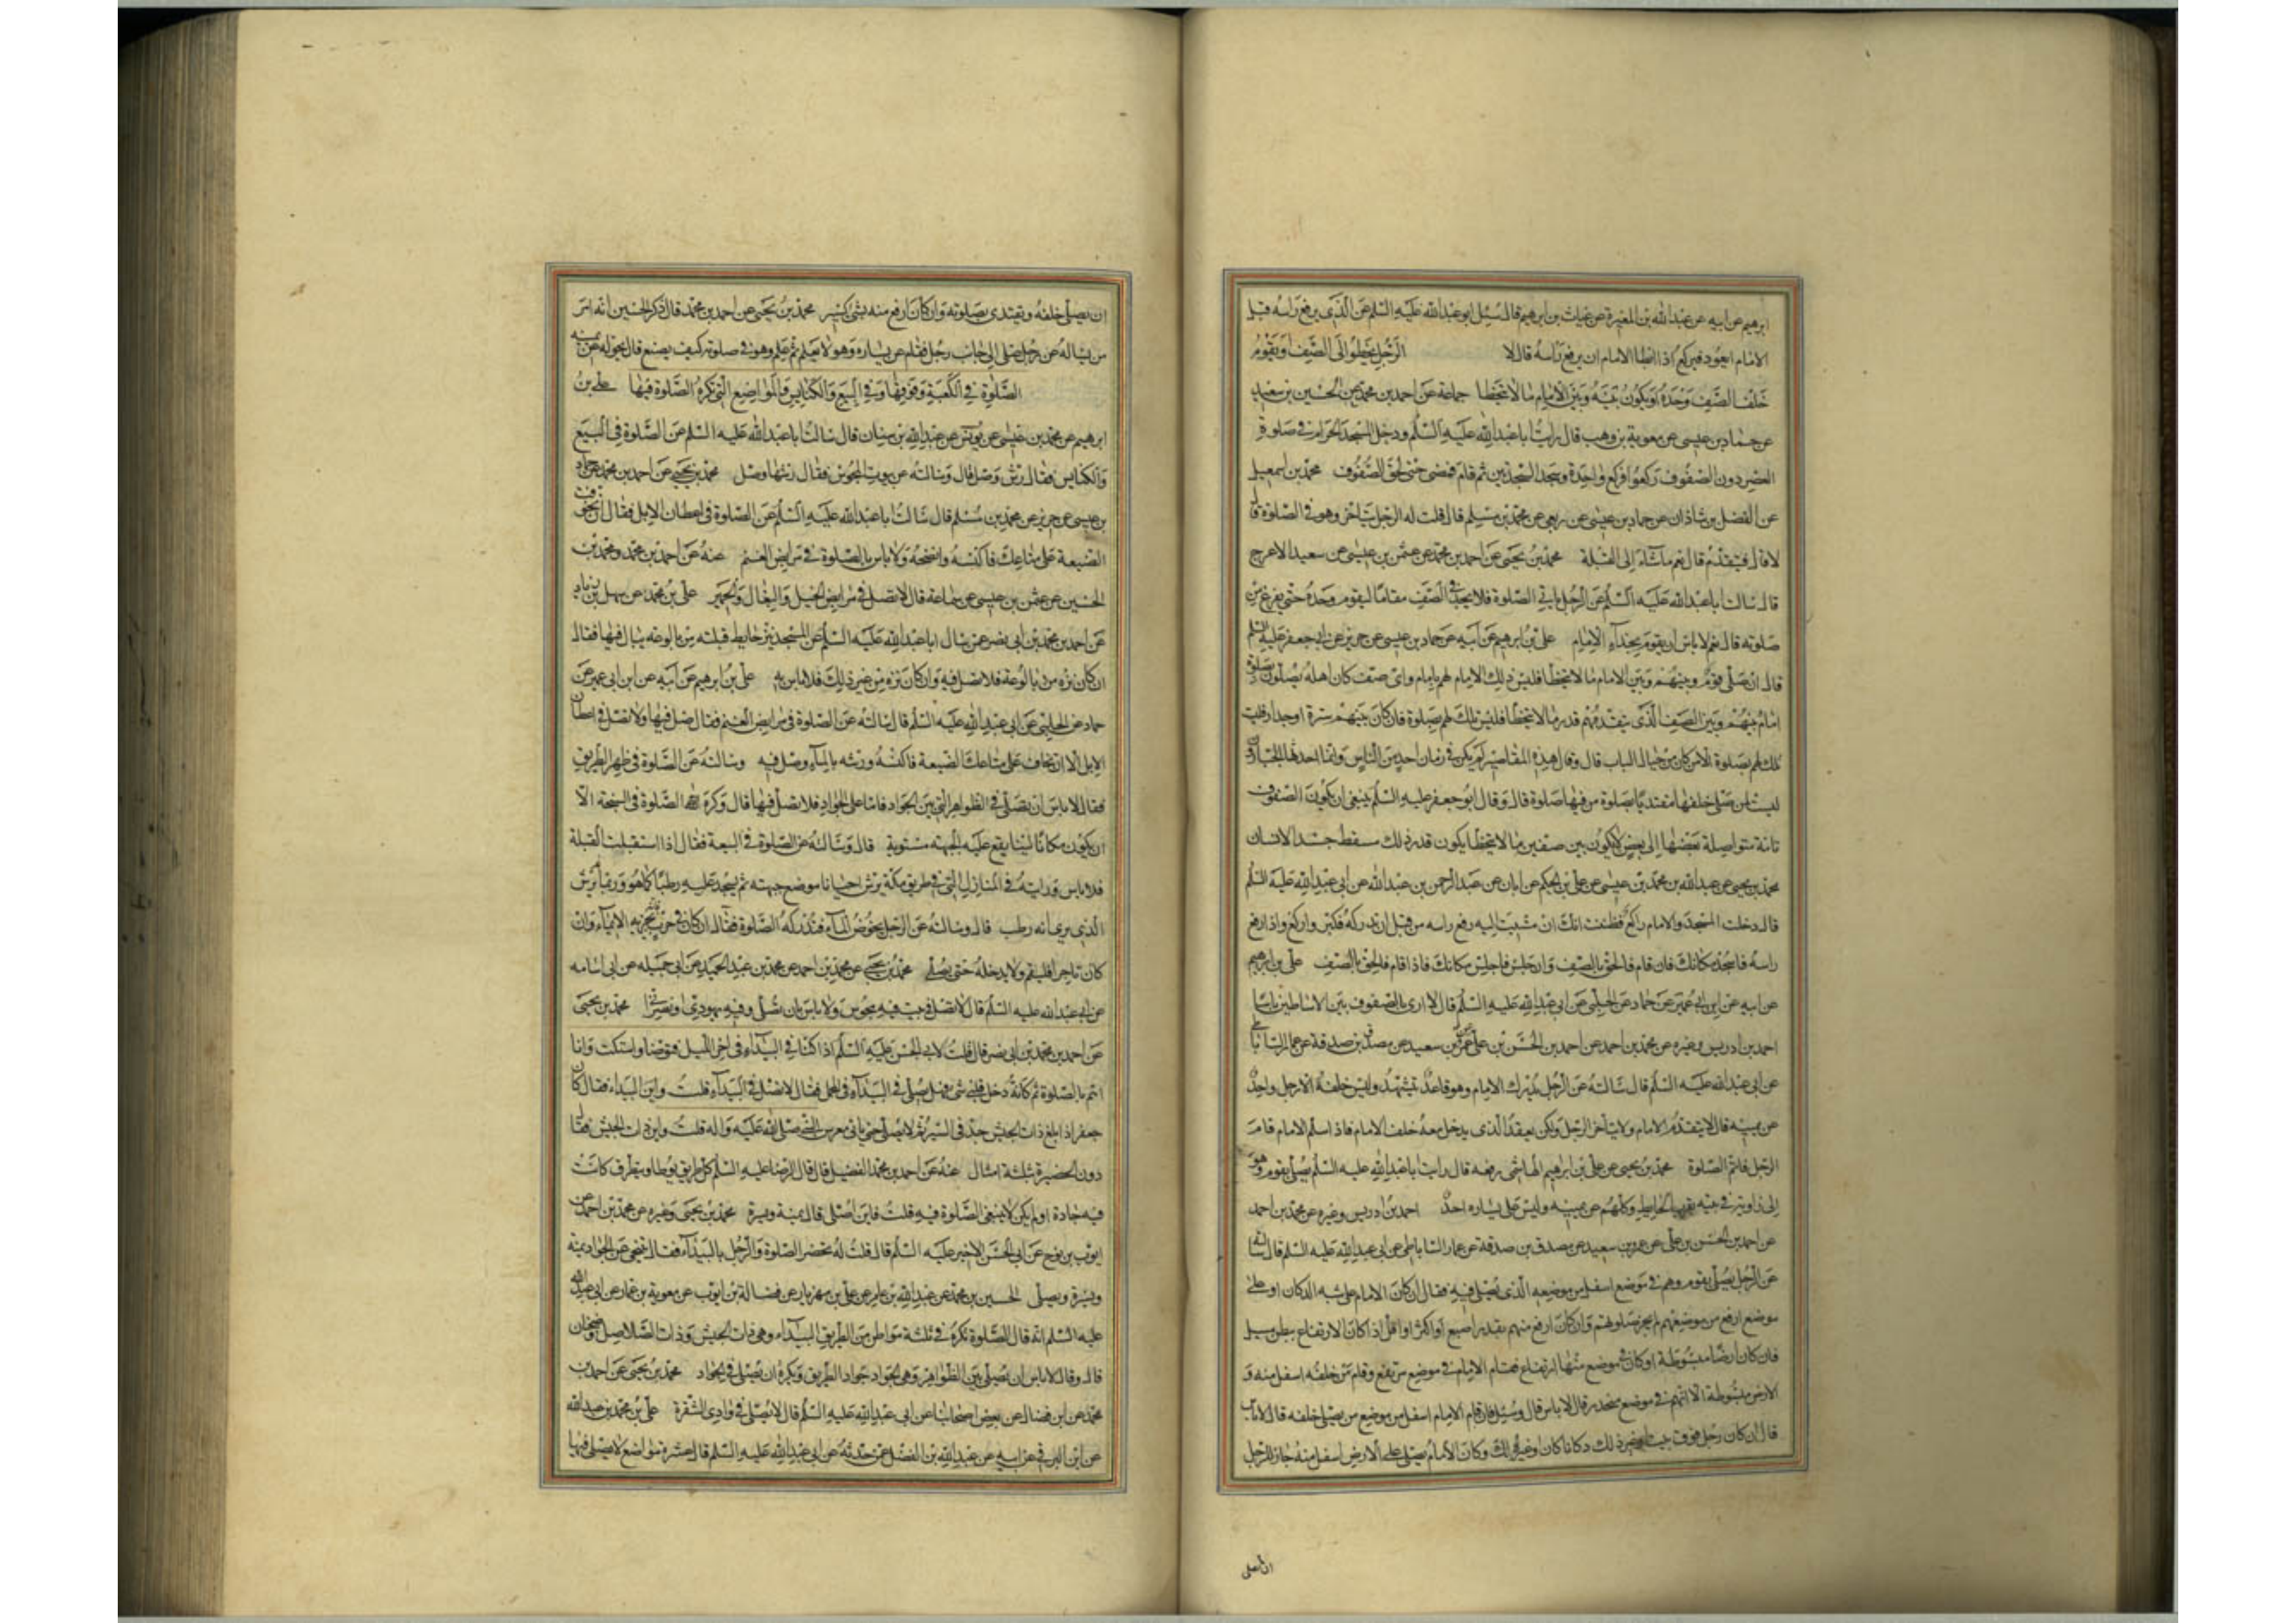 ابرهيم عن ابيه عن عبد الله بن المغيرة عن غياث بن ابرهيم قال سئل ابو عبد الله عليه السلم عن الذى يرفع راسه قبل
الامام ايعود فيركع اذا ابطا الامام ان يرفع راسه قال لا الرجل يخطوا الى الصف او يقوم
خلف الصف وحده او يكون بينه وبين الامام ما لا يتخطا جماعة عن احمد بن محمد عن الحسين بن سعيد
عن حماد بن عيسى عن معوية بن وهب قال رايت ابا عبد الله عليه السلم ودخل المسجد الحرام فى صلوة
العصر دون الصفوف ركعوا فركع واحدة وسجد السجدتين ثم قام فمضى حتى لحق الصفوف محمد بن اسمعيل
عن الفضل بن شاذان عن حماد بن عيسى عن ربعى عن محمد بن مسلم قال قلت له الرجل يتاخر وهو فى الصلوة قال
لا قال فيتقدم قال نعم ماشاء الى القبلة محمد بن يحيى عن احمد بن محمد عن عثمن بن عيسى عن سعيد الاعرج
قال سالت ابا عبد الله عليه السلم عن الرجل ياتى الصلوة فلا يجد فى الصف مقاما ايقوم وحده حتى يفرغ من
صلوته قال نعم لا باس ان يقوم بحذاء الامام على بن ابرهيم عن ابيه عن حماد بن عيسى عن حريز عن ابى جعفر عليه السلم
قال ان صلى قوم وبينهم وبين الامام ما لا يتخطا فليس ذلك الامام لهم بامام واى صف كان اهله يصلون بصلوة
امام بينهم وبين الصف الذى يتقدمهم قدر ما لا يتخطا فليس تلك لهم بصلوة فان كان بينهم سترة او جدار فليت
تلك لهم بصلوة الا من كان من حيال الباب قال وقال هذه المقاصير لم يكن فى زمان احد من الناس وانما احدثها الجبارون
ليت لمن صلى خلفها مقتديا بصلوة من فيها صلوة قال وقال ابو جعفر عليه السلم ينبغى ان يكون الصفوف
تامة متواصلة بعضها الى بعض لا يكون بين صفين ما لا يتخطا يكون قدر ذلك مسقط جسد الانسان
محمد بن يحيى عن عبد الله بن محمد بن عيسى عن على بن الحكم عن ابان عن عبد الرحمن بن عبد الله عن ابى عبد الله عليه السلم
قال دخلت المسجد والامام راكع فظننت انك ان مشيت اليه رفع راسه من قبل ان تدركه فكبر واركع واذا رفع
راسه فاسجد مكانك فان قام فالحق بالصف وان جلس فاجلس مكانك فاذا قام فالحق بالصف على بن ابرهيم
عن ابيه عن ابن ابى عمير عن حماد عن الحلبى عن ابى عبد الله عليه السلم قال لا ارى بالصفوف بين الاساطين باسا
احمد بن ادريس وغيره عن محمد بن احمد عن احمد بن الحسن بن على عن عمرو بن سعيد عن مصدق بن صدقة عن عمار الساباطى
عن ابى عبد الله عليه السلم قال سالته عن الرجل يدرك الامام وهو قاعد يتشهد وليس خلفه الا رجل واحد
عن يمينه قال لا يتقدم الامام ولا يتاخر الرجل ولكن يقعد الذى يدخل معه خلف الامام فاذا سلم الامام قام
الرجل فاتم الصلوة محمد بن يحيى عن على بن ابراهيم الهاشمى رفعه قال رايت ابا عبد الله عليه السلم يصلى بقوم وهو
الى زاوية فى بيته بقرب الحايط وكلهم عن يمينه وليس على يساره احد احمد بن ادريس وغيره عن محمد بن احمد
عن احمد بن الحسن بن على عن عمرو بن سعيد عن مصدق بن صدقة عن عمار الساباطى عن ابى عبد الله عليه السلم قال سالته
عن الرجل يصلى بقوم وهم فى موضع اسفل من موضعه الذى يصلى فيه فقال ان كان الامام على شبه الدكان او على
موضع ارفع من موضعهم لم يجز صلوتهم وان كان ارفع منهم بقدر اصبع او اكثر او اقل اذا كان الارتفاع ببطن مسيل
فان كان ارضا مبسوطة او كان فى موضع منها ارتفاع فقام الامام فى موضع مرتفع وقام من خلفه اسفل منه و
الارض مبسوطة الا انهم فى موضع منحدر قال لا باس قال وسئل فان قام الامام اسفل من موضع من يصلى خلفه قال لا باس
قال ان كان رجل فوق بيت او غير ذلك دكانا كان او غيره وكان الامام يصلى على الارض اسفل منه جاز للرجل
ان يصلى
ان يصلى خلفه ويقتدى بصلوته وان كان ارفع منه بشى كثير محمد بن يحيى عن احمد بن محمد قال ذكر الحسين انه امر
من يساله عن رجل صلى الى جانب رجل فقام عن يساره وهو لا يعلم ثم علم وهو فى صلوته كيف يصنع قال يحوله عن يمينه
الصلوة فى الكعبة وفوقها وفى البيع والكنايس والمواضع التى تكره الصلوة فيها على بن
ابرهيم عن محمد بن عيسى عن يونس عن عبد الله بن سنان قال سالت ابا عبد الله عليه السلم عن الصلوة فى البيع
والكنايس فقال رش وصل قال وسالته عن بيوت المجوس فقال رشها وصل محمد بن يحيى عن احمد بن محمد عن حماد
بن عيسى عن حريز عن محمد بن مسلم قال سالت ابا عبد الله عليه السلم عن الصلوة فى اعطان الابل فقال ان تخوفت
الضيعة على متاعك فاكنسه وانضحه ولا باس بالصلوة فى مرابض الغنم عنه عن احمد بن محمد ومحمد بن
الحسين عن عثمن بن عيسى عن سماعة قال لا تصل فى مرابض الخيل والبغال والحمير على بن محمد عن سهل بن زياد
عن احمد بن محمد بن ابى نصر عمن سال ابا عبد الله عليه السلم عن المسجد ينز حايط قبلته من بالوعة يبال فيها فقال
ان كان نزه من بالوعة فلا تصل فيه وان كان نزه من غير ذلك فلا باس به على بن ابرهيم عن ابيه عن ابن ابى عمير عن
حماد عن الحلبى عن ابى عبد الله عليه السلم قال سالته عن الصلوة فى مرابض الغنم فقال صل فيها ولا تصل فى اعطان
الابل الا ان تخاف على متاعك الضيعة فاكنسه ورشه بالماء وصل فيه وسالته عن الصلوة فى ظهر الطريق
فقال لا باس ان تصلى فى الظواهر التى بين الجواد فاما على الجواد فلا تصل فيها قال وكره الصلوة فى السبخة الا
ان يكون مكانا لينا يقع عليه الجبهة مستوية قال وسالته عن الصلوة فى البيعة فقال اذا استقبلت القبلة
فلا باس ورايته فى المنازل التى فى طريق مكة يرش احيانا موضع جبهته ثم يسجد عليه رطبا كما هو وربما لم يرش
الذى يرى انه رطب قال وسالته عن الرجل يخوض الماء فتدركه الصلوة فقال ان كان فى حرب يجزيه الايماء وان
كان تاجرا فليقم ولا يدخله حتى يصلى محمد بن يحيى عن محمد بن احمد عن محمد بن عبد الحميد عن ابى جميله عن ابى اسامه
عن ابى عبد الله عليه السلم قال لا تصل فى بيت فيه مجوسى ولا باس بان تصلى وفيه يهودى او نصرانى محمد بن يحيى
عن احمد بن محمد بن ابى نصر قال قلت لابى الحسن عليه السلم اذا كنا فى البيداء فى اخر الليل فتوضا واستكت وانا
اتم بالصلوة ثم كانه دخل قلبى شى فهل يصلى فى البيداء فى المحمل فقال لا تصل فى البيداء قلت واين البيداء فقال كان
جعفر اذا بلغ ذات الجيش جد فى السير ثم لا يصلى حتى ياتى معرس النبى صلى الله عليه واله قلت واين ذات الجيش فقال
دون الحضيرة بثلثة اميال عنه عن احمد بن محمد الفضيل قال قال الرضا عليه السلم كل طريق يوطا ويتطرق كانت
فيه جادة اولم يكن لا ينبغى الصلوة فيه قلت فاين اصلى قال يمنة ويسرة محمد بن يحيى وغيره عن محمد بن احمد عن
ايوب بن نوح عن ابى الحسن الاخير عليه السلم قال قلت له تحضر الصلوة والرجل بالبيداء فقال يتنحى عن الجواد يمنه
ويسرة ويصلى الحسين بن محمد عن عبد الله بن عامر عن على بن مهزيار عن فضالة بن ايوب عن معوية بن عمار عن ابى عبد الله
عليه السلم انه قال الصلوة تكره فى ثلثة مواطن من الطريق البيداء وهى ذات الجيش وذات الصلاصل وضجنان
قال وقال لا باس ان يصلى بين الظواهر وهى الجواد جواد الطريق ويكره ان يصلى فى الجواد محمد بن يحيى عن احمد بن
محمد عن ابن فضال عن بعض اصحابنا عن ابى عبد الله عليه السلم قال لا تصلى فى وادى الشقرة على بن محمد بن عبد الله
عن ابن البرقى عن ابيه عن عبد الله بن الفضل عمن حدثه عن ابى عبد الله عليه السلم قال عشرة مواضع لا يصلى فيها